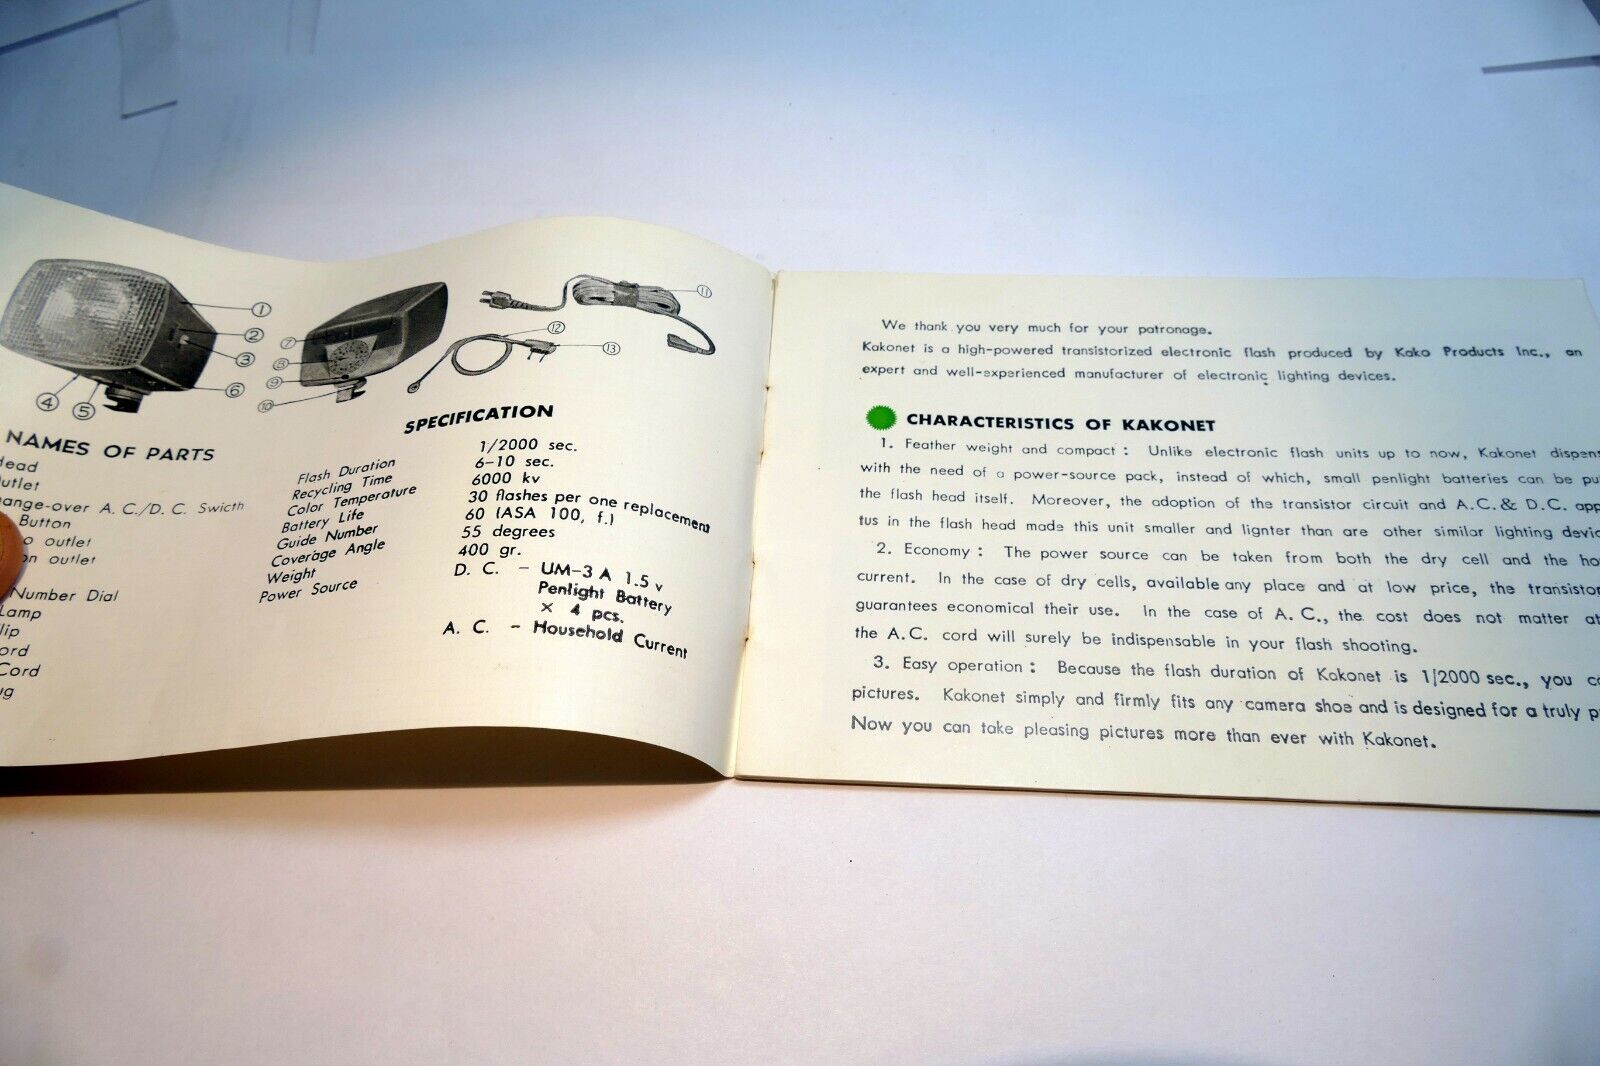 1
2
3
4
5
6
7
8
9
10
11
12
13
NAMES OF PARTS
A. C./D. C. Swicth
Button
outlet
outlet
Number Dial
Lamp
Cord
SPECIFICATION
Flash Duration 1/2000 sec.
Recycling Time 6-10 sec.
Color Temperature 6000 kv
Battery Life 30 flashes per one replacement
Guide Number 60 (ASA 100, f.)
Coverage Angle 55 degrees
Weight 400 gr.
Power Source D. C. - UM-3 A 1.5 v
Penlight Battery
× 4 pcs.
A. C. - Household Current
We thank you very much for your patronage.
Kakonet is a high-powered transistorized electronic flash produced by Kako Products Inc., an
expert and well-experienced manufacturer of electronic lighting devices.
CHARACTERISTICS OF KAKONET
1. Feather weight and compact : Unlike electronic flash units up to now, Kakonet dispens
with the need of a power-source pack, instead of which, small penlight batteries can be pu
the flash head itself. Moreover, the adoption of the transistor circuit and A.C. & D.C. app
tus in the flash head made this unit smaller and lignter than are other similar lighting devic
2. Economy : The power source can be taken from both the dry cell and the ho
current. In the case of dry cells, available any place and at low price, the transistor
guarantees economical their use. In the case of A. C., the cost does not matter at
the A.C. cord will surely be indispensable in your flash shooting.
3. Easy operation : Because the flash duration of Kakonet is 1/2000 sec., you c
pictures. Kakonet simply and firmly fits any camera shoe and is designed for a truly p
Now you can take pleasing pictures more than ever with Kakonet.